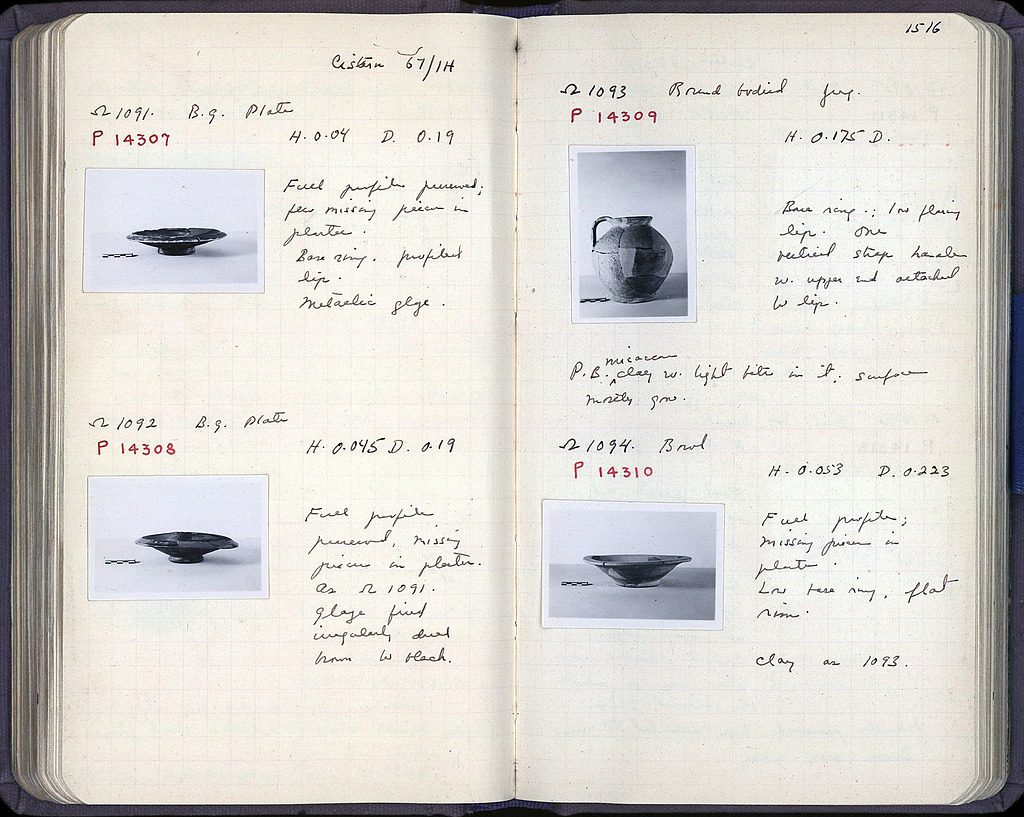 Cistern 67/ΙΗ
Ω 1091. B.g. Plate
P 14307
H. 0.04 D. 0.19
Full profile preserved;
few missing pieces in
plaster.
Base ring. profiled
lip.
Metallic glaze.
Ω 1092 B.g. Plate
P 14308
H. 0.045 D. 0.19
Full profile
preserved, missing
pieces in plaster.
as Ω 1091.
glaze fired
irregularly dull
brown to black.
1516
Ω 1093 Round bodied jug.
P 14309
H. 0.175 D.
Base ring; low flaring
lip. One
vertical strap handle
w. upper end attached
to lip.
micaceous
P.B. clay w. light bits in it; surface
mostly gone.
Ω 1094. Bowl
P 14310
H. 0.053 D. 0.223
Full profile;
missing pieces in
plaster.
Low base ring, flat
rim.
clay as 1093.